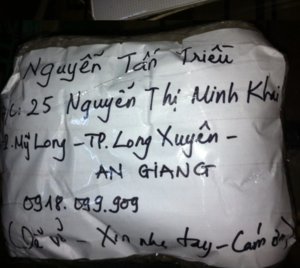 Nguyễn Tấn Triều
C: 25 Nguyễn Thị Minh Khai
P. Mỹ Long - TP. Long Xuyên -
AN GIANG
0918. 099. 909
(Dễ vỡ - Xin nhẹ tay - Cám ơn)